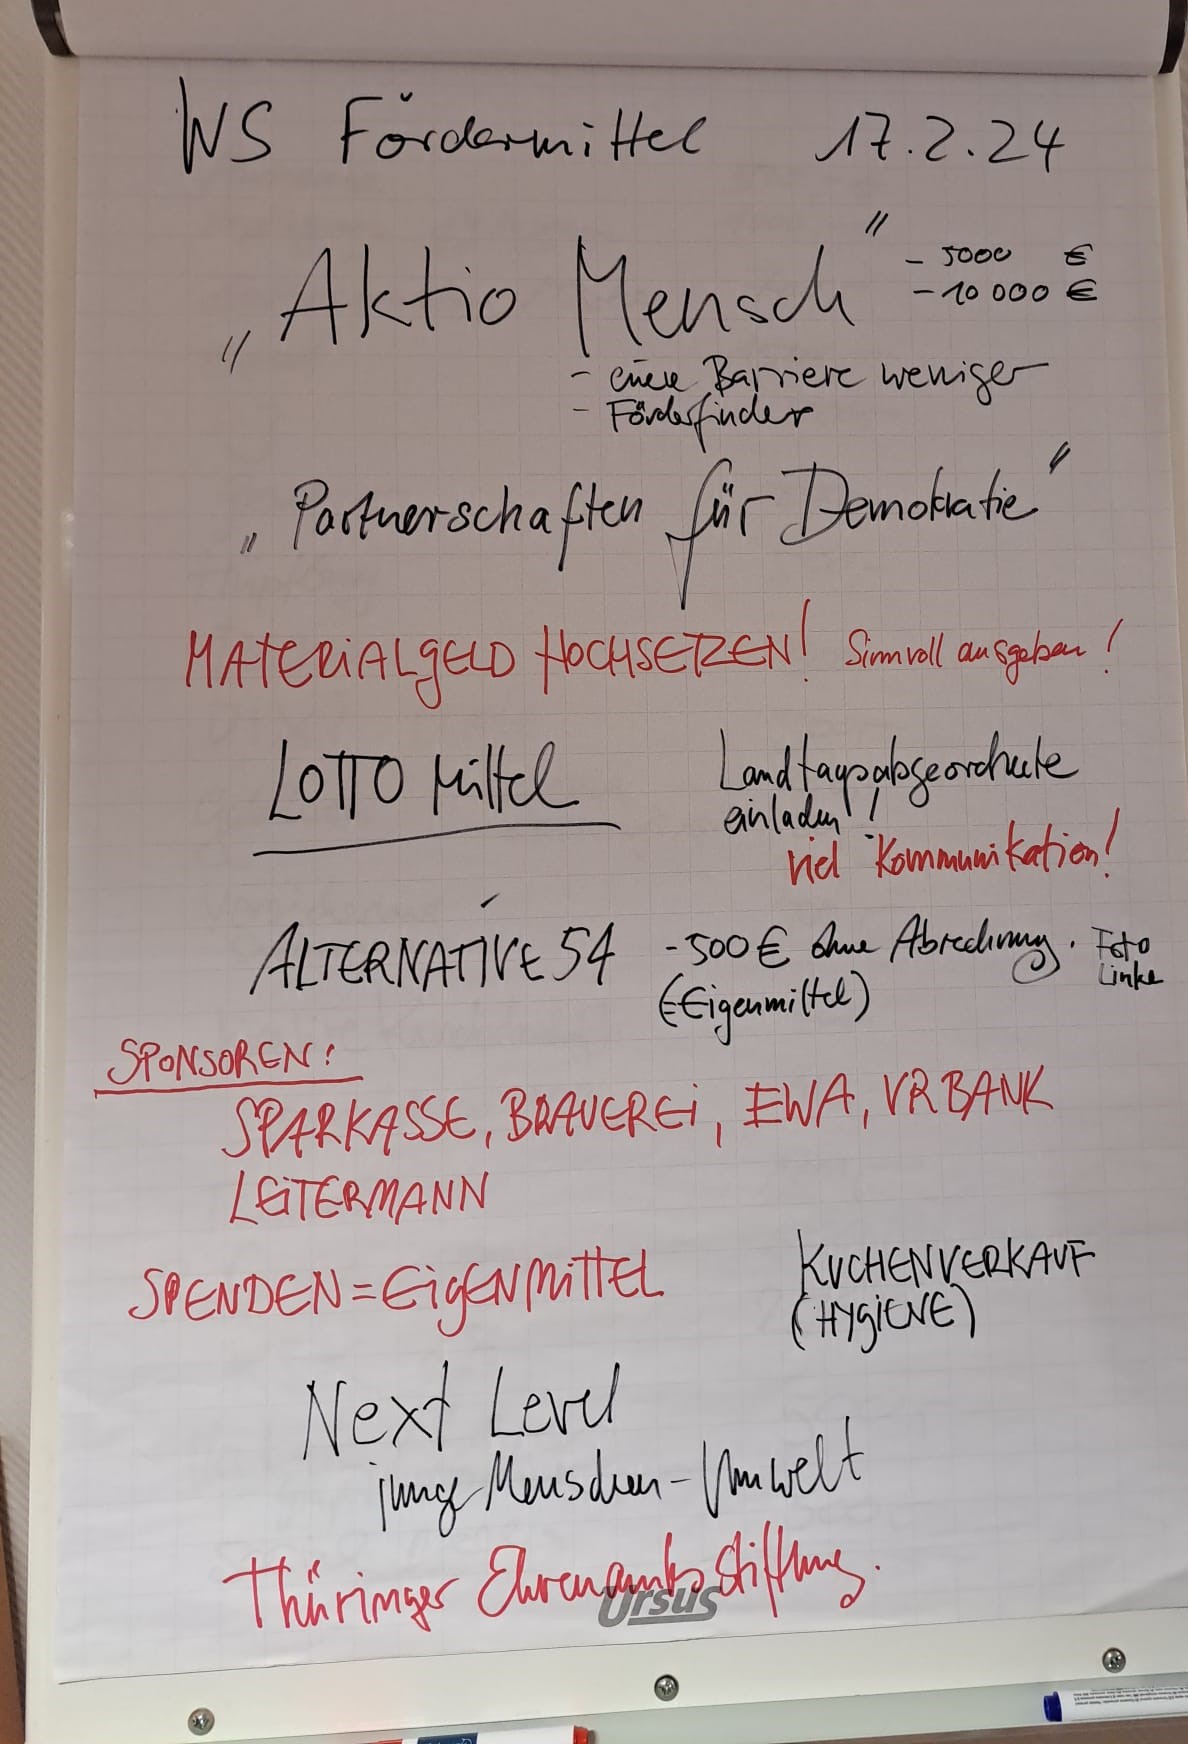 WS Fördermittel 17.2.24
„Aktio Mensch" - 5000 €
- 10 000 €
- eine Barriere weniger
- Förderfinder
„Partnerschaften für Demokratie"
MATERiALgELD HOCHSETZEN! Sinnvoll ausgeben!
LOTTO Mittel
Landtagsabgeordnete
einladen!
viel Kommunikation!
ALTERNATIVE 54 - 500 € ohne Abrechnung. Foto
Linke
(=Eigenmittel)
SPONSOREN:
SPARKASSE, BRAUEREi, EWA, VR BANK
LEiTERMANN
SPENDEN = EigENMiTTEL
KUCHENVERKAUF
(HYgiENE)
Next Level
junge Menschen - Umwelt
Thüringer Ehrenamtsstiftung.
Ursus